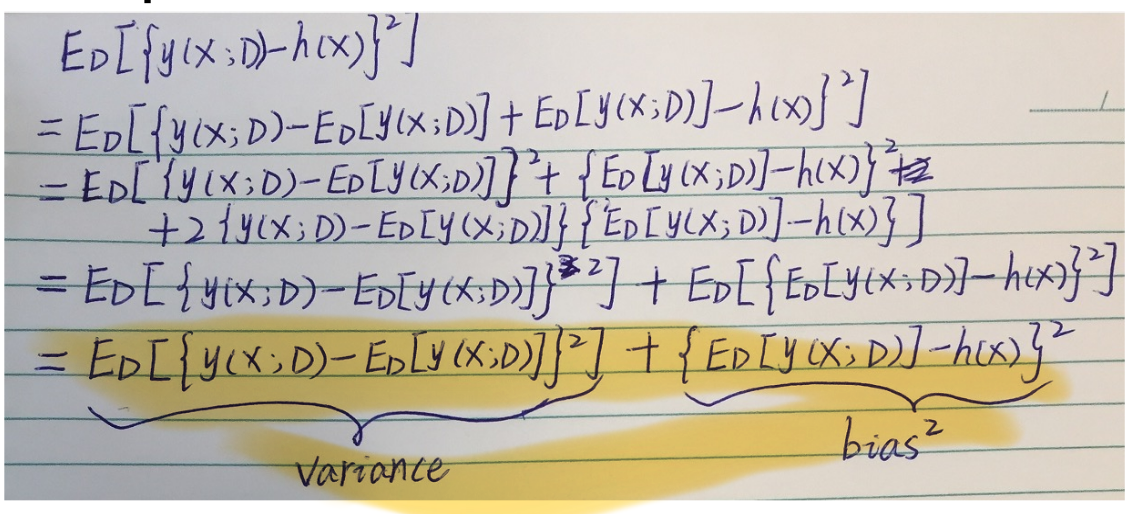 E_D[{y(x;D)-h(x)}²]
= E_D[{y(x;D)-E_D[y(x;D)]+E_D[y(x;D)]-h(x)}²]
= E_D[{y(x;D)-E_D[y(x;D)]}²+{E_D[y(x;D)]-h(x)}²
+2{y(x;D)-E_D[y(x;D)]}{E_D[y(x;D)]-h(x)}]
= E_D[{y(x;D)-E_D[y(x;D)]}²]+E_D[{E_D[y(x;D)]-h(x)}²]
= E_D[{y(x;D)-E_D[y(x;D)]}²]+{E_D[y(x;D)]-h(x)}²
variance bias²